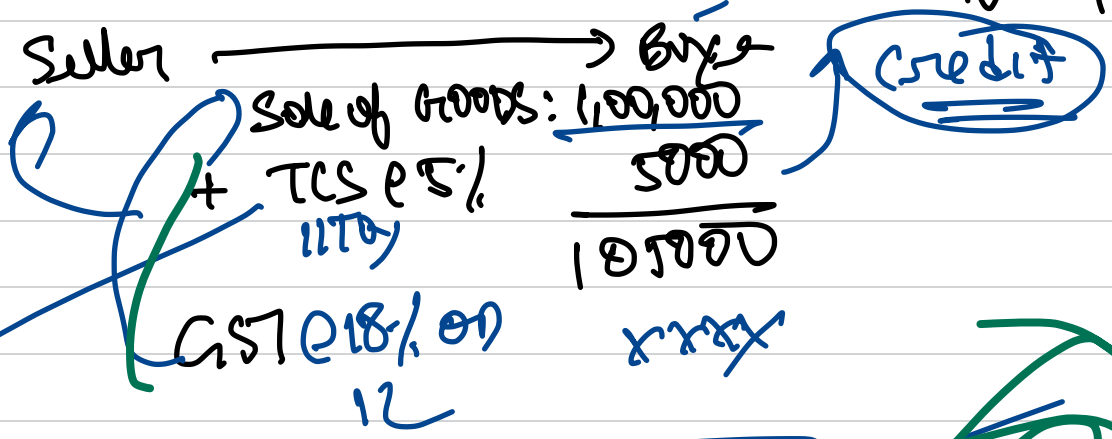 Seller → Buyer
Credit
Sale of GOODS: 1,00,000
+ TCS @ 5% 5000
105000
GST @ 18% on xxxx
1L